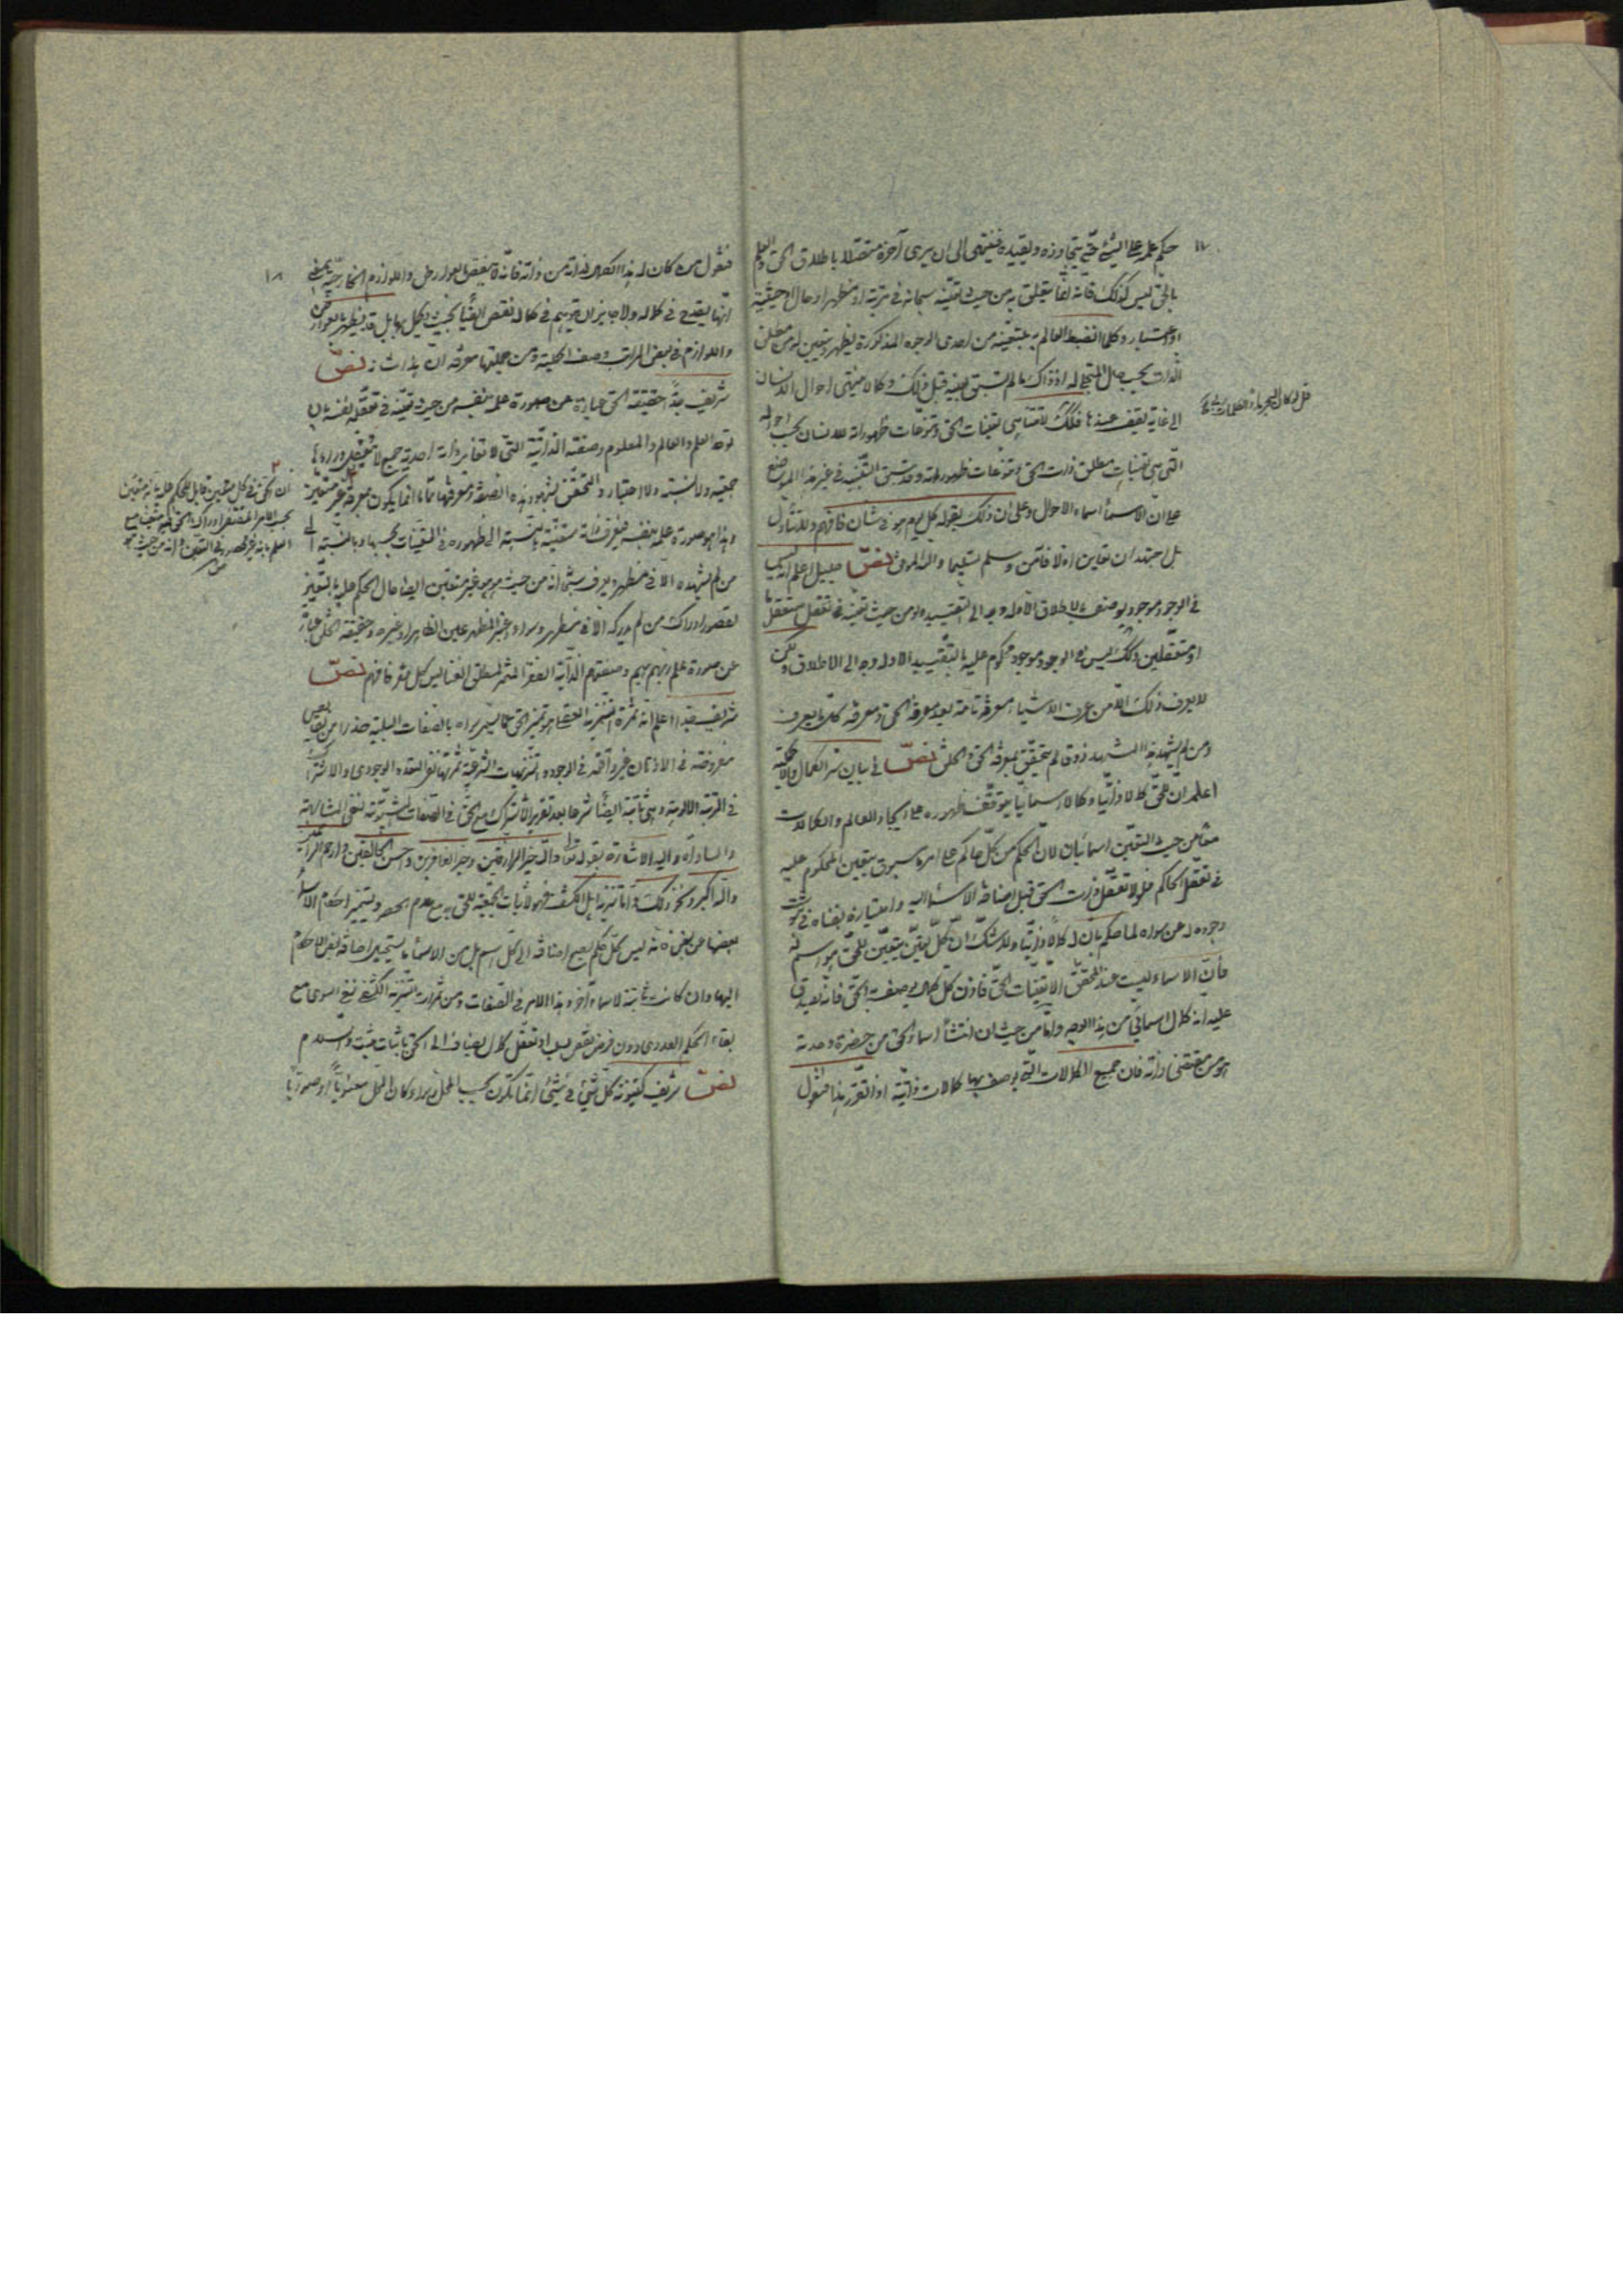 ١٧
حكم علمه على الشئ حتى يتجاوزه ويقيده فينتهى الى ان يرى آخره متصلا باطلاق الحق والعلم
بالحق ليس كذلك فانه انما يتعلق به من حيث تعينه سبحانه فى مرتبة او مظهر او حال او حيثية
او اعتبار وكلما انضبط للعالم به بتعينه من احدى الوجوه المذكورة يظهر ويتعين له من مطلق
الذات بحسب حال المتجلى له اذ ذاك ما لم يسبق تعينه قبل ذلك وكما لا ينتهى احوال الانسان
الى غاية يقف عندها فكذلك لا تتناهى تعينات الحق وتنوعات ظهوراته للانسان بحسب احواله
التى هى تعينات مطلق ذات الحق وتنوعات ظهوراته وقد سبق التنبيه فى غير هذا الموضع
على ان الاسماء اسماء الاحوال وعلى ان ذلك بقوله كل يوم هو فى شأن فافهم ولا تتأول
بل اجتهد ان تعاين اولا فآمن وسلم تسليما والله الموفق نص جليل اعلم انه ليس
فى الوجود موجود يوصف بالاطلاق الا وله وجه الى التقييد ولو من حيث تعينه فى تعقل متعقل ما
او متعقلين وكذلك ليس فى الوجود موجود محكوم عليه بالتقييد الا وله وجه الى الاطلاق ولكن
لا يعرف ذلك الا من عرف الاشياء معرفة تامة بعد معرفة الحق ومعرفة كل ما يعرف
ومن لم يشهد هذا المشهد ذوقا لم يتحقق بمعرفة الحق والخلق نص فى بيان سر الكمال والاكملية
اعلم ان للحق كمالا ذاتيا وكمالا اسمائيا يتوقف ظهوره على ايجاد العالم والكمالات
معا من حيث التعين اسمائيان لان الحكم من كل حاكم على امر ما مسبوق بتعين المحكوم عليه
فى تعقل الحاكم فلولا تعقل ذات الحق قبل اضافة الاسماء اليه وامتيازه بغناه فى ثبوت
وجوده له عن سواه لما حكم بان له كمالا ذاتيا ولا شك ان كل تعين يتعين للحق هو اسم له
فان الاسماء ليست عند المحقق الا تعينات الحق فاذن كل كمال يوصف به الحق فانه يصدق
عليه انه كمال اسمائى من هذا الوجه واما من حيث ان انتشاء اسماء الحق من حضرة وحدته
هو من مقتضى ذاته فان جميع الكمالات التى يوصف بها كمالات ذاتية اذا تقرر هذا فنقول
١٨
فنقول من كان له هذا الكمال لذاته من ذاته فانه لا ينقص بالعوارض واللوازم الخارجية بمعنى
انها يقدح فى كماله ولا جايز ان يتوهم فى كماله نقص ايضا بحيث يكمل بها بل قد يظهر بالعوارض
واللوازم فى بعض المراتب وصف اكملية ومن جملتها معرفة ان هذا شأنه نص
شريف جدا حقيقة الحق عبارة عن صورة علمه بنفسه من حيث تعينه فى تعقله نفسه بان
توحد العلم والعالم والمعلوم وصفته الذاتية التى لا تغاير ذاته احدية جمع لا يتعقل وراءها
جمعية ولا نسبة ولا اعتبار والتحقق بشهود هذه الصفة ومعرفتها تماما انما يكون بمعرفة
وهذا هو صورة علمه بنفسه فيعرف ذاته متعينة بالنسبة الى ظهوره فى التعينات بحسبها وبالنسبة الى
من لم يشهده الا فى مظهر ويعرف ايضا انه من حيث هو هو غير متعين ايضا حال الحكم عليه بالتعين
لقصور ادراك من لم يدركه الا فى مظهر وسواء اعتبر المظهر عين الظاهر او غيره وحقيقة الخلق عبارة
عن صورة علم ربهم بهم وصفتهم الذاتية الفقر المثمر لمطلق الغنا ليس كل فقر فافهم نص
شريف جدا اعلم ان ثمرة التنزيه العقلى هو تميز الحق عما يسمى سواه بالصفات السلبية حذرا من نقايص
مفروضة فى الاذهان غير واقعة فى الوجود والتنزيهات الشرعية ثمرتها نفى التعدد الوجودى والاشتراك
فى المرتبة الالوهية وهى ثابتة ايضا شرعا بعد تقرير الاشتراك مع الحق فى الصفات الثبوتية لنفى المشابهة
والمساواة واليه الاشارة بقوله تعالى والله خير الرازقين وخير الغافرين واحسن الخالقين وارحم الراحمين
والله اكبر ونحو ذلك واما تنزيه اهل الكشف فهو لاثبات الجمعية للحق مع عدم الحصر وتميز احكام الاسماء
بعضها عن بعض فانه ليس كل حكم يصح اضافته الى كل اسم بل من الاسماء ما يستحيل اضافة بعض الاحكام
اليها وان كانت ثابتة لاسماء آخر وهذا الامر فى الصفات ومن ثمرات التنزيه الكشفى نفى السوى مع
بقاء الحكم العددى دون فرض نقص يسلب او تعقل كمال يضاف الى الحق باثبات مثبت والسلام
نص شريف كينونة كل شئ فى شئ انما تكون بحسب المحل وسواء كان المحل معنويا او صوريا